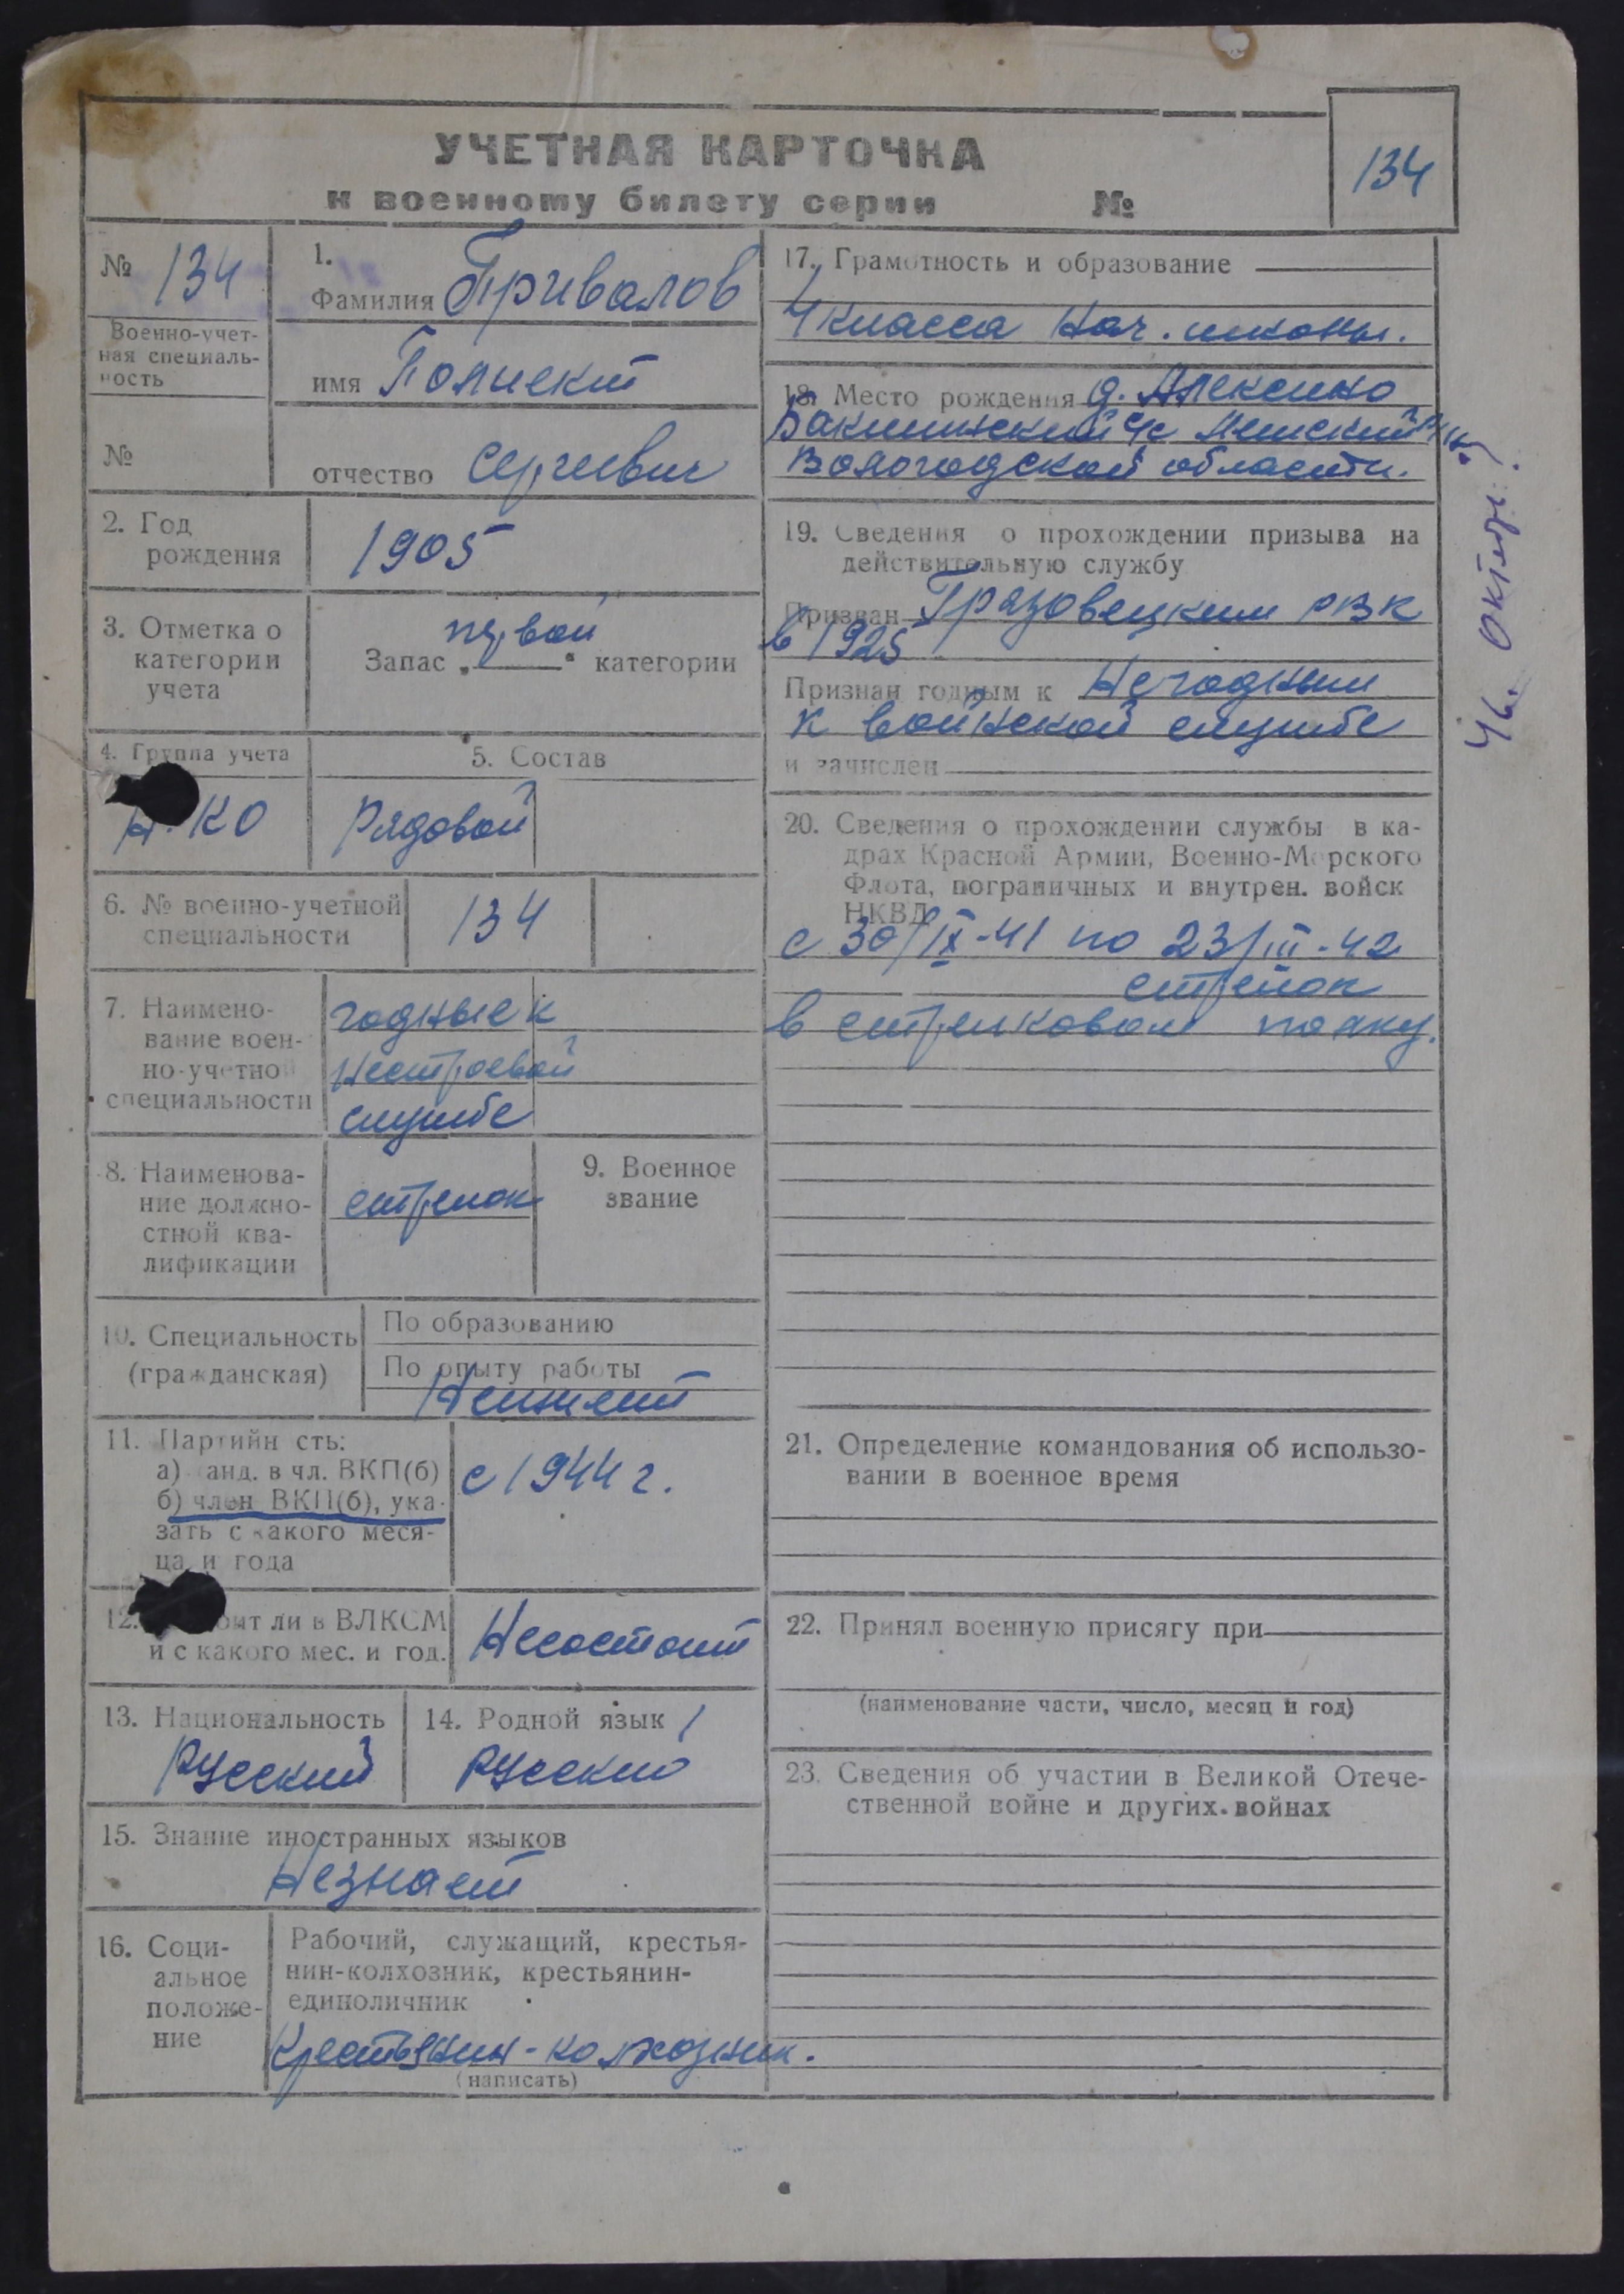 УЧЕТНАЯ КАРТОЧКА
к военному билету серии №
134
№ 134
Военно-учет-
ная специаль-
ность
№
1.
Фамилия Привалов
имя Полиект
отчество Сергиевич
2. Год
рождения
1905
3. Отметка о
категории
учета
Запас „первой“ категории
4. Группа учета
КО
5. Состав
Рядовой
6. № военно-учетной
специальности
134
7. Наимено-
вание воен-
но-учетной
специальности
годные к
нестроевой
службе
8. Наименова-
ние должно-
стной ква-
лификации
стрелок
9. Военное
звание
10. Специальность
(гражданская)
По образованию
По опыту работы
Неимеет
11. Партийн сть:
а) анд. в чл. ВКП(б)
б) член ВКП(б), ука-
зать с какого меся-
ца и года
с 1944 г.
12. оит ли в ВЛКСМ
и с какого мес. и год.
Несостоит
13. Национальность
Русский
14. Родной язык
Русский
15. Знание иностранных языков
Незнает
16. Соци-
альное
положе-
ние
Рабочий, служащий, крестья-
нин-колхозник, крестьянин-
единоличник
Крестьянин-колхозник.
(написать)
17. Грамотность и образование
4 класса нач. школы.
18. Место рождения д. Алексино
с/с
Вологодской области.
19. Сведения о прохождении призыва на
действительную службу
Призван Грязовецким РВК
в 1925
Признан годным к Негодным
к войнской службе
и зачислен
20. Сведения о прохождении службы в ка-
драх Красной Армии, Военно-Морского
Флота, пограничных и внутрен. войск
НКВД
с 30/IX-41 по 23/III-42
стрелок
в стрелковом полку.
21. Определение командования об использо-
вании в военное время
22. Принял военную присягу при
(наименование части, число, месяц и год)
23. Сведения об участии в Великой Отече-
ственной войне и других войнах